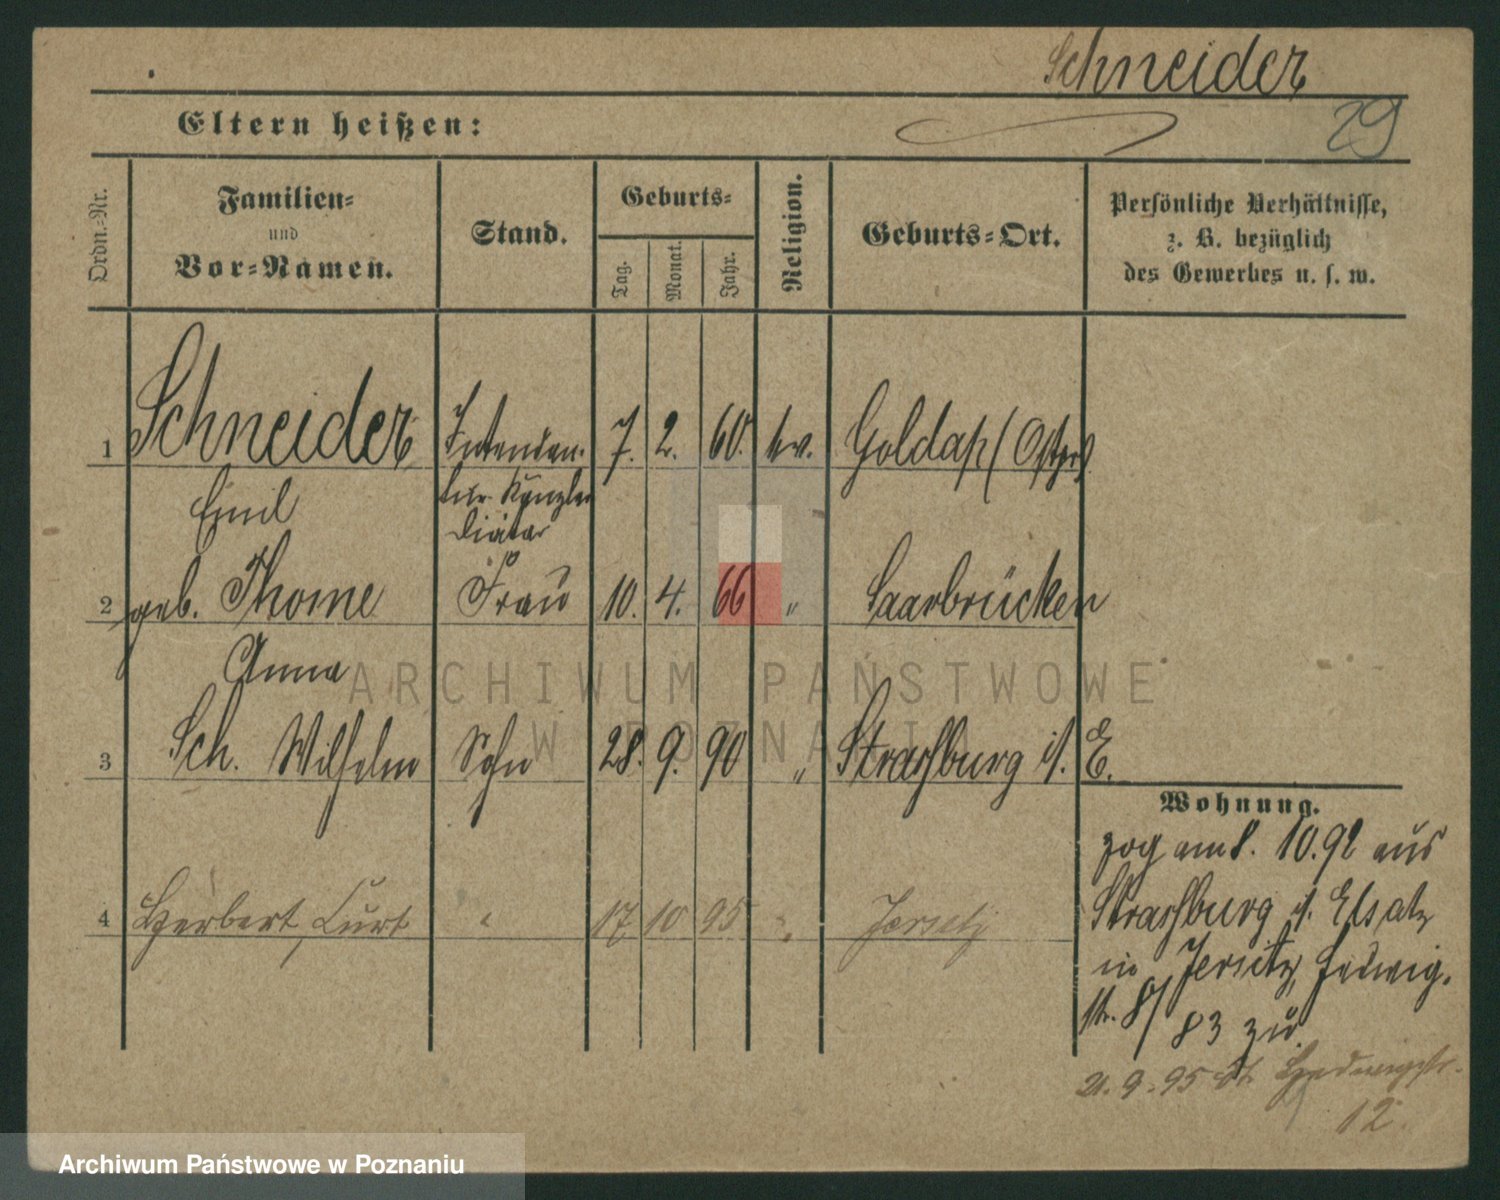 Schneider
29
Eltern heißen:
Ordn.-Nr.
Familien-
und
Vor-Namen.
Stand.
Geburts-
Tag.
Monat.
Jahr.
Religion.
Geburts-Ort.
Persönliche Verhältnisse,
z. B. bezüglich
des Gewerbes u. s. w.
1 Schneider Intendan- 7. 2. 60. ev. Goldap (Ostpr)
Emil tur Kanzlei
Diätar
2 geb. Thome Frau 10. 4. 66 " Saarbrücken
Anna
3 Sch. Wilhelm Sohn 28. 9. 90 " Straßburg i/. E.
4 Herbert, Curt " 17 10 95 " Jersitz
Wohnung.
zog am 8. 10. 92 aus
Straßburg i/. Elsatz
in Jersitz, Hedwig-
str. 8/
83 zu.
21. 9. 95 Hedwigstr.
12.
ARCHIWUM PAŃSTWOWE
W POZNANIU
Archiwum Państwowe w Poznaniu